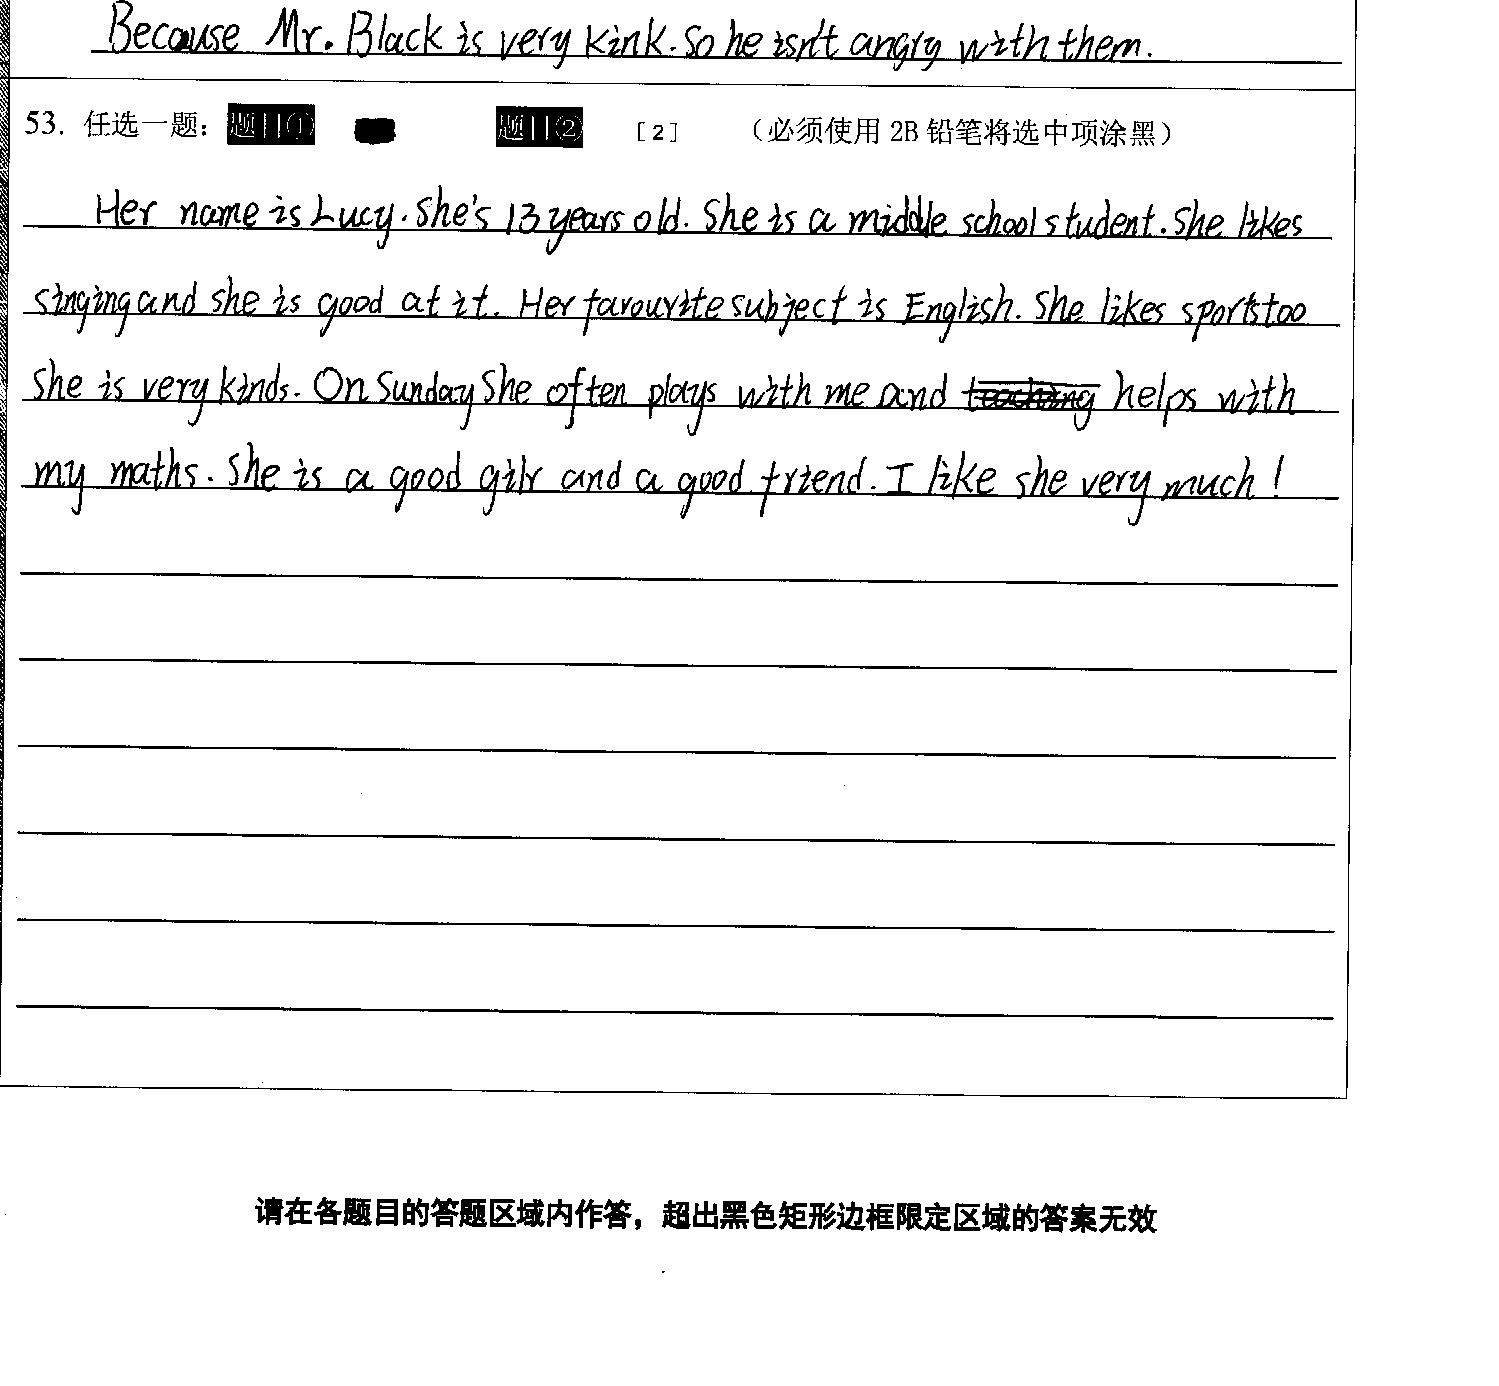 Because Mr. Black is very kink. So he isn't angry with them.
53. 任选一题： 题目① 题目② [2] （必须使用 2B 铅笔将选中项涂黑）
Her name is Lucy. She's 13 years old. She is a middle school student. She likes
singing and she is good at it. Her favourite subject is English. She likes sports too
She is very kinds. On Sunday She often plays with me and helps with
my maths. She is a good gilr and a good friend. I like she very much!
请在各题目的答题区域内作答，超出黑色矩形边框限定区域的答案无效